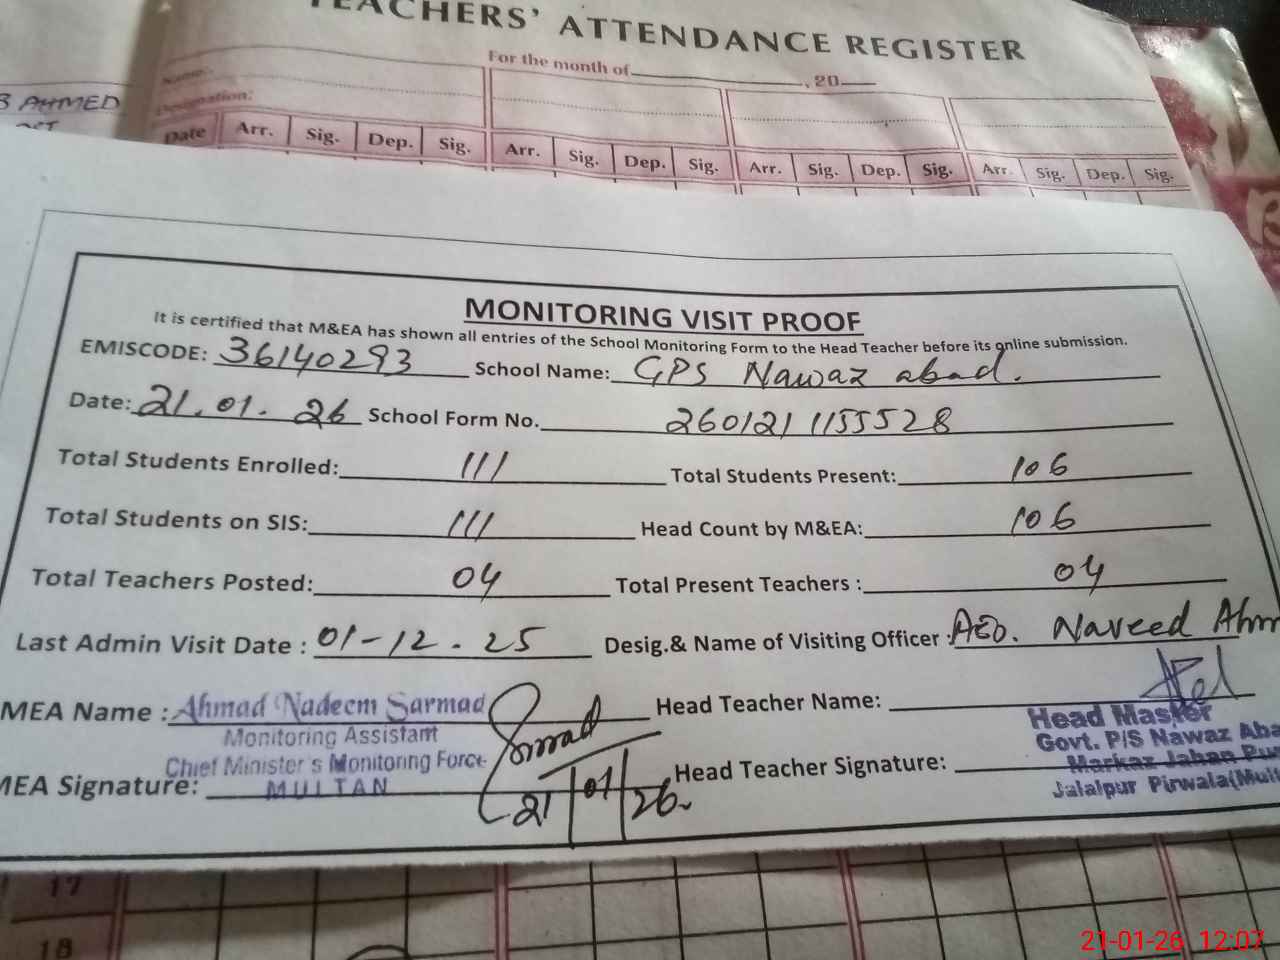 TEACHERS' ATTENDANCE REGISTER
For the month of , 20
Name:
Designation:
B AHMED
Date Arr. Sig. Dep. Sig. Arr. Sig. Dep. Sig. Arr. Sig. Dep. Sig. Arr. Sig. Dep. Sig.
MONITORING VISIT PROOF
It is certified that M&EA has shown all entries of the School Monitoring Form to the Head Teacher before its online submission.
EMISCODE: 36140293 School Name: GPS Nawaz abad.
Date: 21.01.26 School Form No. 260121 1155528
Total Students Enrolled: 111 Total Students Present: 106
Total Students on SIS: 111 Head Count by M&EA: 106
Total Teachers Posted: 04 Total Present Teachers : 04
Last Admin Visit Date : 01-12.25 Desig.& Name of Visiting Officer : AEO. Naveed Ahm
MEA Name : Ahmad Nadeem Sarmad Head Teacher Name:
Monitoring Assistant
Chief Minister's Monitoring Force
MULTAN
MEA Signature: Sarmad 21/01/26 Head Teacher Signature:
Head Master
Govt. P/S Nawaz Aba
Markaz Jahan Pur
Jalalpur Pirwala(Mult
17
18
21-01-26 12:07